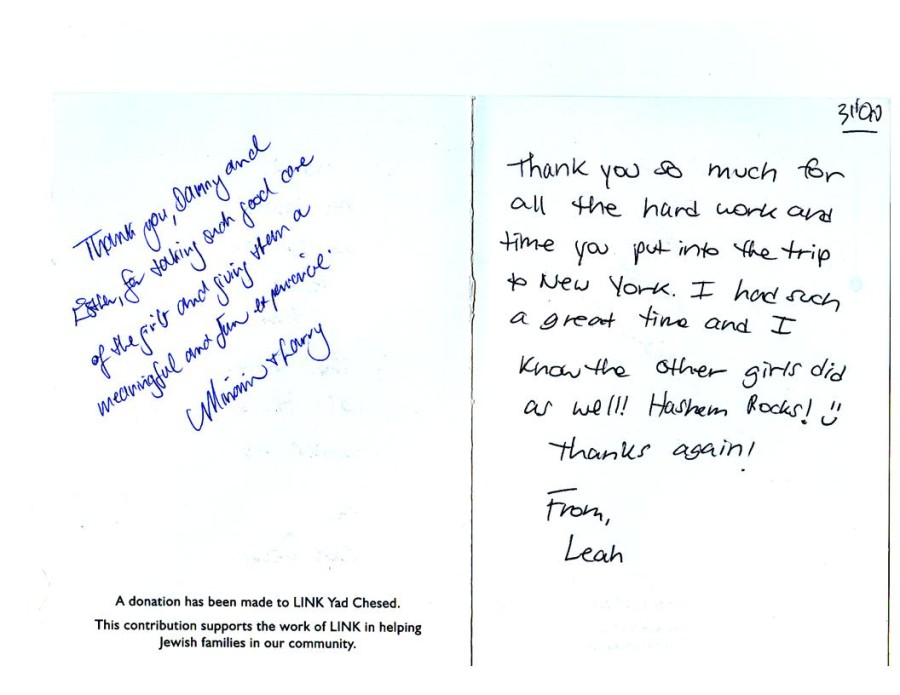 Thank you, Danny and
Esther, for taking such good care
of the girls and giving them a
meaningful and fun experience.
Miriam + Larry
A donation has been made to LINK Yad Chesed.
This contribution supports the work of LINK in helping
Jewish families in our community.
Thank you so much for
all the hard work and
time you put into the trip
to New York. I had such
a great time and I
know the other girls did
as well! Hashem Rocks!
Thanks again!
From,
Leah